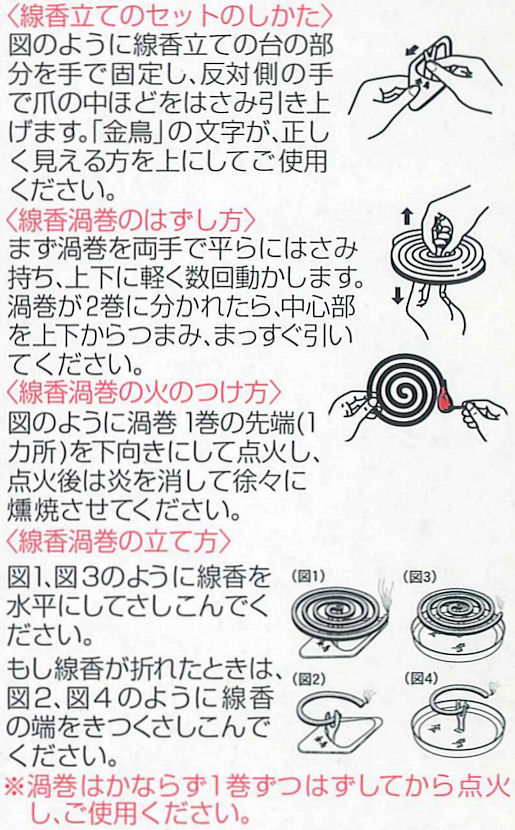 〈線香立てのセットのしかた〉
図のように線香立ての台の部
分を手で固定し、反対側の手
で爪の中ほどをはさみ引き上
げます。「金鳥」の文字が、正し
く見える方を上にしてご使用
ください。
〈線香渦巻のはずし方〉
まず渦巻を両手で平らにはさみ
持ち、上下に軽く数回動かします。
渦巻が2巻に分かれたら、中心部
を上下からつまみ、まっすぐ引い
てください。
〈線香渦巻の火のつけ方〉
図のように渦巻1巻の先端(1
カ所)を下向きにして点火し、
点火後は炎を消して徐々に
燻焼させてください。
〈線香渦巻の立て方〉
図1、図3のように線香を
水平にしてさしこんでく
ださい。
もし線香が折れたときは、
図2、図4のように線香
の端をきつくさしこんで
ください。
(図1)
(図3)
(図2)
(図4)
※渦巻はかならず1巻ずつはずしてから点火
し、ご使用ください。